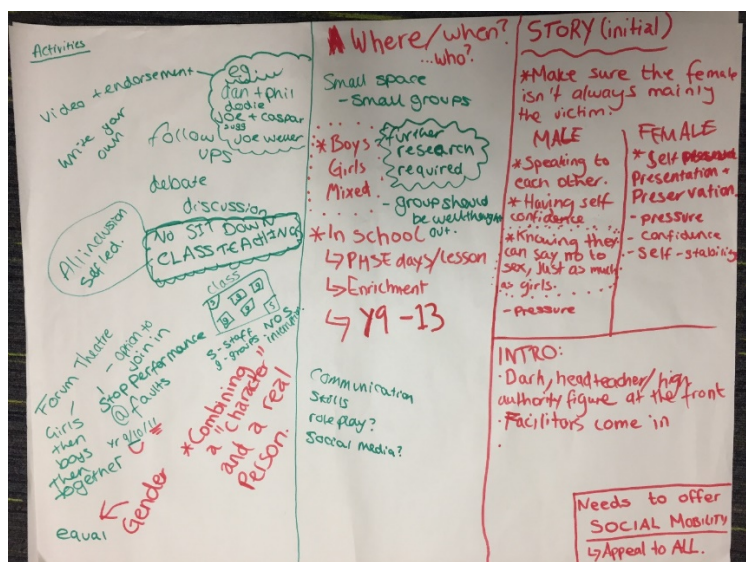 Activities
Video + endorsement
eg
dan + phil
dodie
joe + caspar
sugg
joe weller
write your
own
follow
ups
debate
discussion
NO SIT DOWN
CLASS TEACHING
All inclusion
self led.
class
S - staff
g - groups - NO S
Forum Theatre
- option to
join in
Stop Performance
@ faults
Girls
then
boys
then
together
yr 9/10/11
*Combining
a "character"
and a real
Person.
Gender
equal
Where/when?
...who?
Small space
- Small groups
*Boys
Girls
Mixed
further
research
required
- group should
be well thought
out.
*In school
↳ PHSE days/lesson
↳ Enrichment
↳ Y9 - 13
Communication
Skills
role play?
Social media?
STORY (initial)
*Make sure the female
isn't always mainly
the victim.
MALE
*Speaking to
each other.
*Having self
confidence
*Knowing they
can say no to
sex, just as much
as girls.
- pressure
FEMALE
*Self
Presentation +
Preservation.
- pressure
- Confidence
- Self-stability
INTRO:
· Dark, headteacher/high
authority figure at the front
· Facilitors come in
·
Needs to offer
SOCIAL MOBILITY
↳ Appeal to ALL.